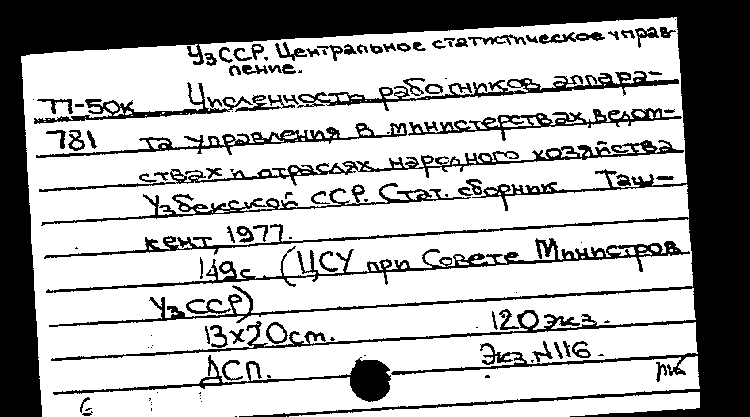 УзССР. Центральное статистическое управ-
ление.
77-50к Численность работников аппара-
781 та управления в министерствах, ведом-
ствах и отраслях народного хозяйства
Узбекской ССР. Стат. сборник. Таш-
кент, 1977.
149с. (ЦСУ при Совете Министров
УзССР)
13х20см. 120экз.
ДСП. Экз.N116.
6